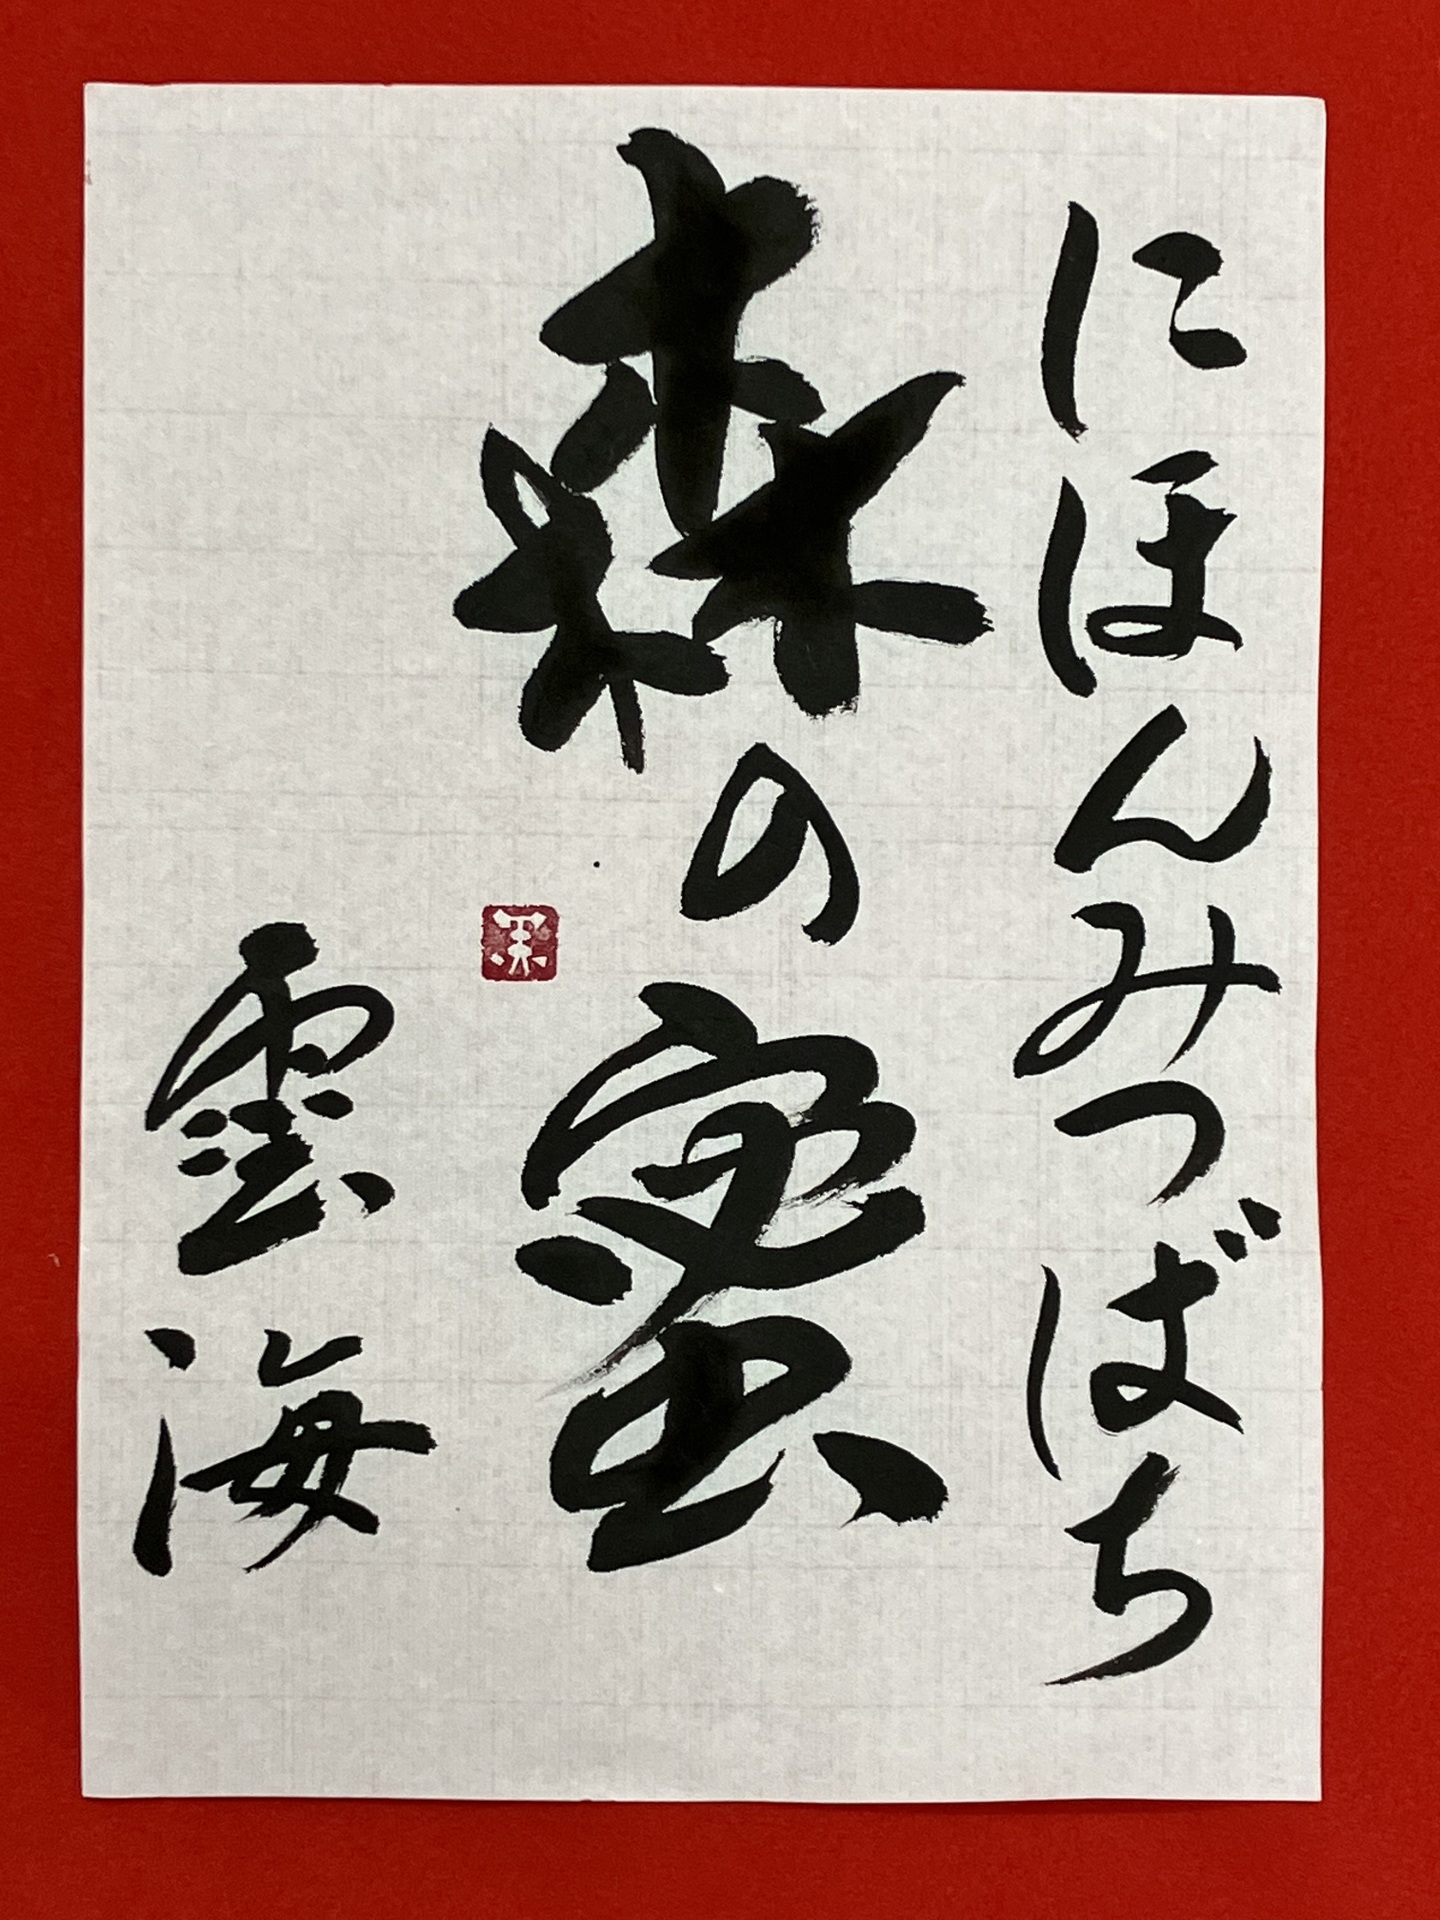 にほんみつばち
森の蜜
雲海